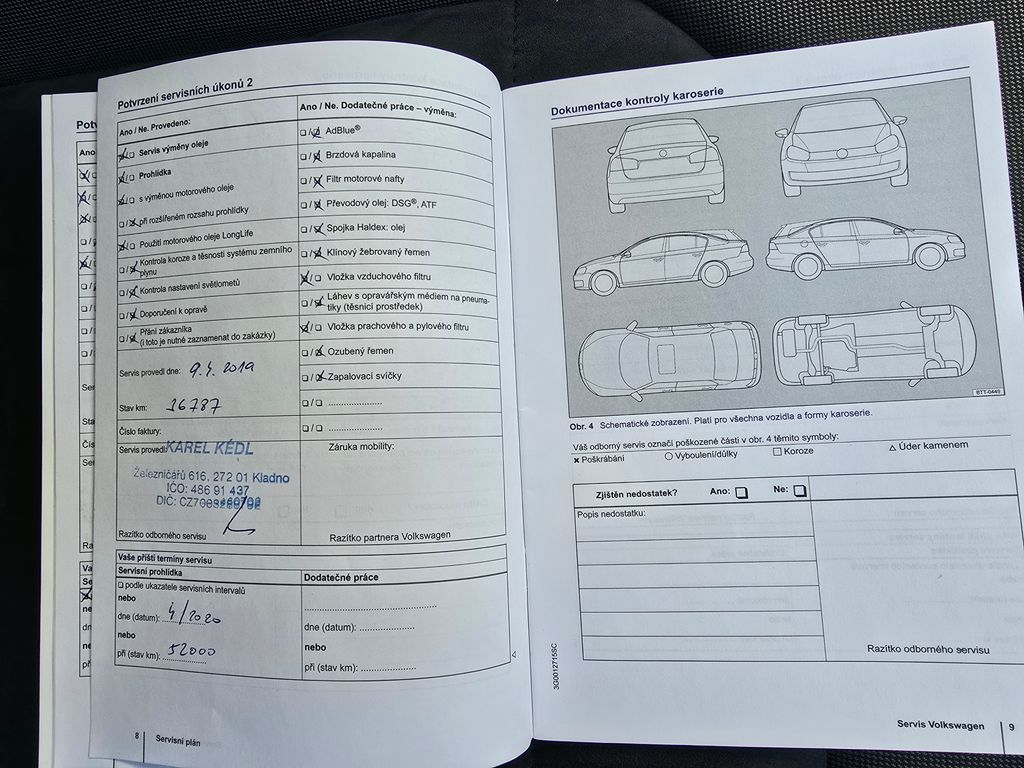 Potvrzení servisních úkonů 2
Ano / Ne. Provedeno:
Servis výměny oleje
Prohlídka
s výměnou motorového oleje
při rozšířeném rozsahu prohlídky
Použití motorového oleje LongLife
Kontrola koroze a těsnosti systému zemního
plynu
Kontrola nastavení světlometů
Doporučení k opravě
Přání zákazníka
(i toto je nutné zaznamenat do zakázky)
Servis provedl dne: 9.4. 2019
Stav km: 36787
Číslo faktury:
Servis provedl
KAREL KÉDL
Železničářů 616, 272 01 Kladno
IČO: 486 91 437
DIČ:
Razítko odborného servisu
Ano / Ne. Dodatečné práce – výměna:
AdBlue®
Brzdová kapalina
Filtr motorové nafty
Převodový olej: DSG®, ATF
Spojka Haldex: olej
Klínový žebrovaný řemen
Vložka vzduchového filtru
Láhev s opravářským médiem na pneuma-
tiky (těsnicí prostředek)
Vložka prachového a pylového filtru
Ozubený řemen
Zapalovací svíčky
Záruka mobility:
Razítko partnera Volkswagen
Vaše příští termíny servisu
Servisní prohlídka
podle ukazatele servisních intervalů
nebo
dne (datum): 4/2020
nebo
při (stav km): 52000
Dodatečné práce
dne (datum): ....................
nebo
při (stav km): ....................
8 Servisní plán
Dokumentace kontroly karoserie
BTT-0449
Obr. 4 Schematické zobrazení. Platí pro všechna vozidla a formy karoserie.
Váš odborný servis označí poškozené části v obr. 4 těmito symboly:
× Poškrábání ○ Vyboulení/důlky □ Koroze △ Úder kamenem
Zjištěn nedostatek? Ano: □ Ne: □
Popis nedostatku:
Razítko odborného servisu
3G0012715SC
Servis Volkswagen 9